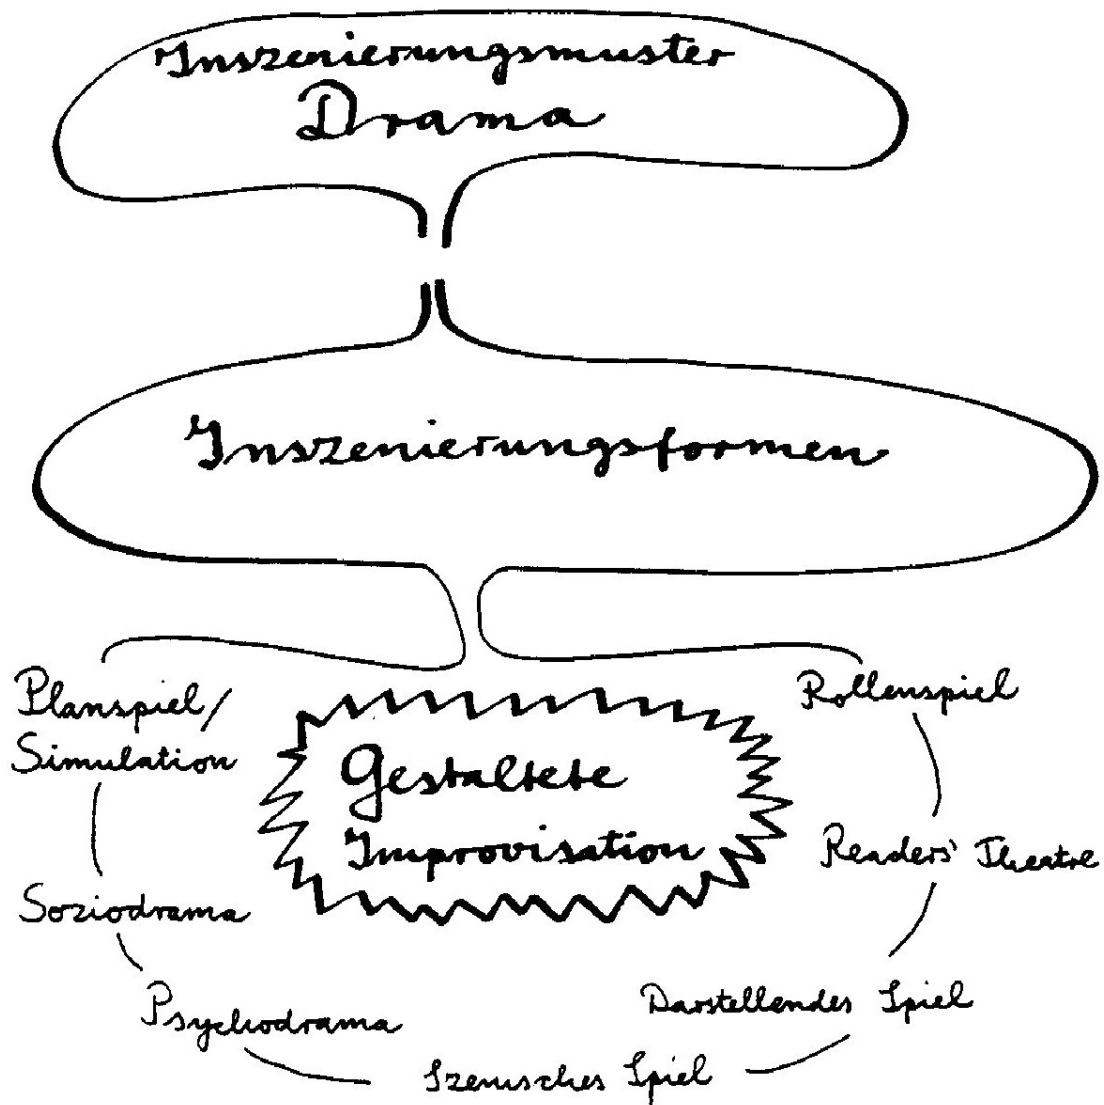 Inszenierungsmuster
Drama
Inszenierungsformen
Planspiel/
Simulation
Rollenspiel
Gestaltete
Improvisation
Readers' Theatre
Soziodrama
Psychodrama
Darstellendes Spiel
Szenisches Spiel